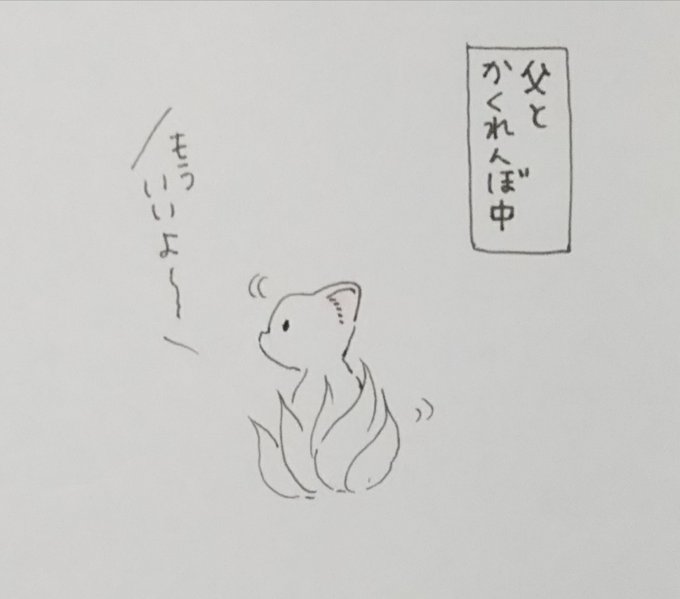 父と
かくれんぼ中
もう
いいよ〜